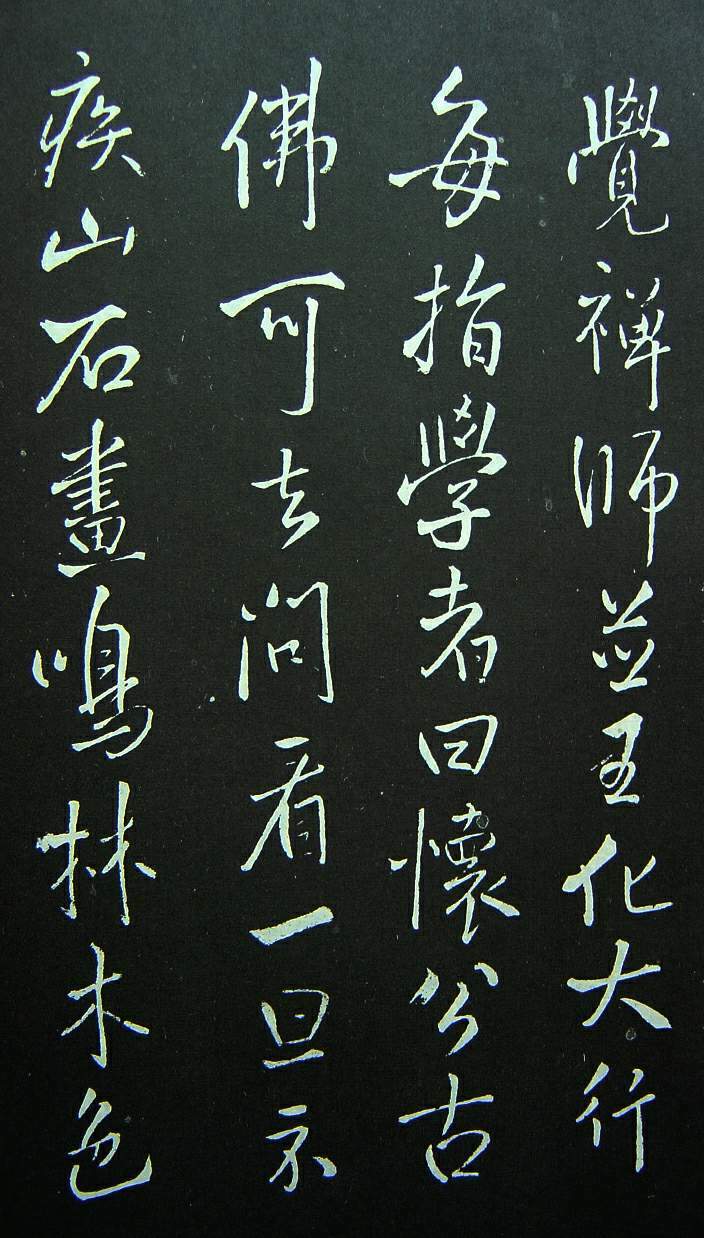 覺禪師並王化大行
每指學者曰懷公古
佛可去問看一旦示
疾山石晝鳴林木色